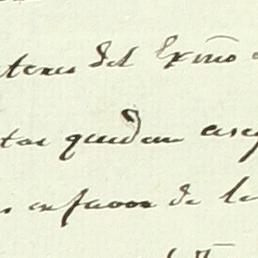 teres del Exmo
tos quedan aseg
s en favor de la